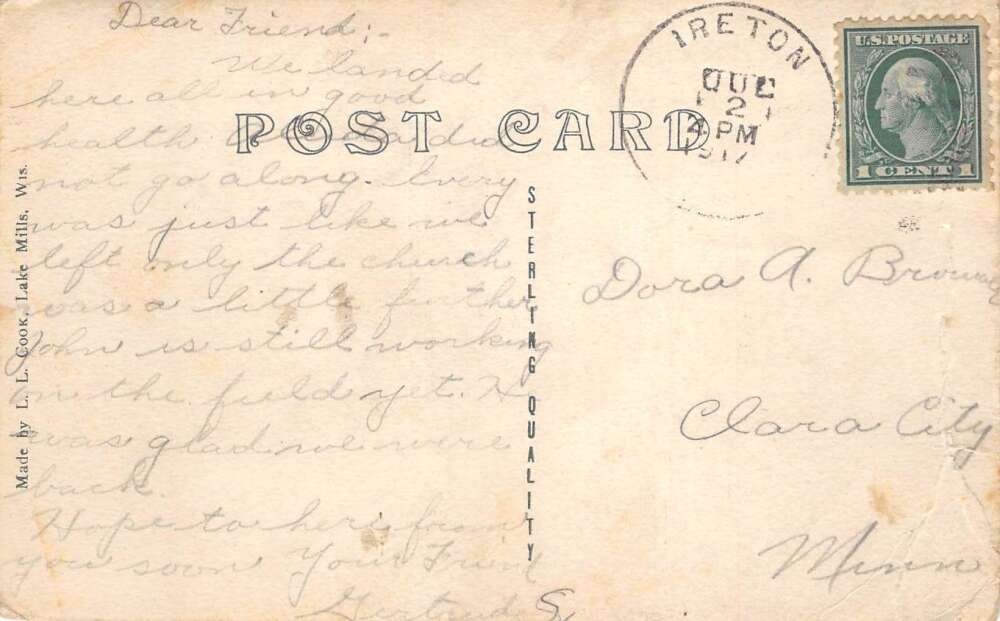 Dear Friend:-
We landed
here all in good
health did
not go along. Every
was just like we
left only the church
was a little further
John is still working
in the field yet. H
was glad we were
back.
Hope to here from
you soon Your Friend
Gertrude S
POST CARD
Made by L. L. Cook, Lake Mills, Wis.
STERLING QUALITY
IRETON
2
PM
1917
U.S. POSTAGE
1 CENT 1
Dora A.
Clara City
Minn